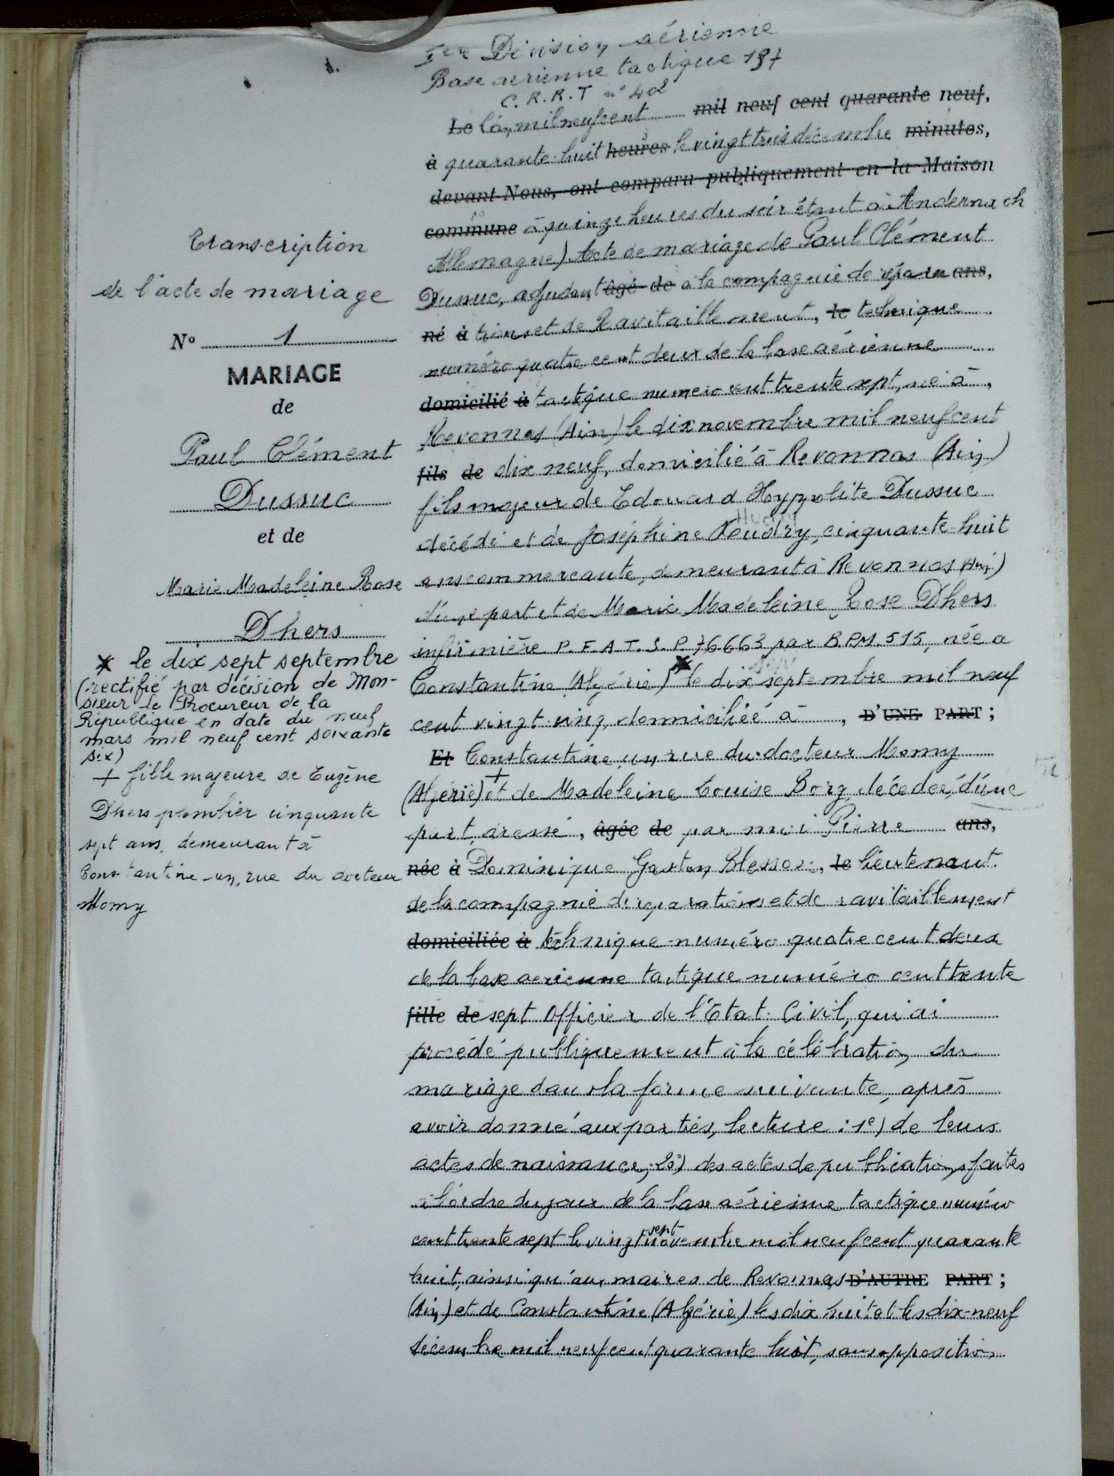 1ère Division aérienne
Base aérienne tactique 137
C.R.R.T n° 402
Transcription
de l'acte de mariage
N° 1
MARIAGE
de
Paul Clément
Dussuc
et de
Marie Madeleine Rose
Dhers
x le dix sept septembre
(rectifié par décision de Mon-
sieur le Procureur de la
République en date du neuf
mars mil neuf cent soixante
six)
+ fille majeure de Eugène
Dhers plombier cinquante
sept ans, demeurant à
Constantine rue du docteur
Momy
Le L'an mil neuf cent mil neuf cent quarante neuf,
à quarante-huit heures le vingt trois décembre minutes,
devant Nous, ont comparu publiquement en la Maison
commune à quinze heures du soir étant à Andernach
Allemagne) Acte de mariage de Paul Clément
Dussuc, adjudant âgé de à la compagnie de répara ans,
né à tions et de Ravitaillement, le technique
numéro quatre cent deux de la base aérienne
domicilié à tactique numéro cent trente sept, né à,
Revonnas (Ain) le dix novembre mil neuf cent
fils de dix neuf, domicilié à Revonnas (Ain)
fils majeur de Edouard Hyppolite Dussuc
décédé et de Joséphine cinquante-huit
ans commerçante, demeurant à Revonnas (Ain)
d'une part et de Marie Madeleine Rose Dhers
infirmière P.F.A.T. S.P. 76663 par B.P.M. 515, née à
Constantine (Algérie) x le dix septembre mil neuf
cent vingt cinq, domiciliée à , D'UNE PART ;
Et Constantine rue du docteur Momy
(Algérie) + et de Madeleine Louise Borg, décédée, d'une
part, dressé, âgée de par moi Pierre ans,
née à Dominique Gaston, le lieutenant
de la compagnie de réparations et de ravitaillement
domiciliée à technique numéro quatre cent deux
de la base aérienne tactique numéro cent trente
fille de sept Officier de l'Etat Civil, qui ai
procédé publiquement à la célébration du
mariage dans la forme suivante, après
avoir donné aux parties, lecture : 1e) de leurs
actes de naissance, 2e) des actes de publications faites
à l'ordre du jour de la base aérienne tactique numéro
cent trente sept le vingt sept novembre mil neuf cent quarante
huit, ainsi qu'aux mairies de Revonnas D'AUTRE PART ;
(Ain) et de Constantine (Algérie) les dix huit et les dix-neuf
décembre mil neuf cent quarante huit, sans opposition